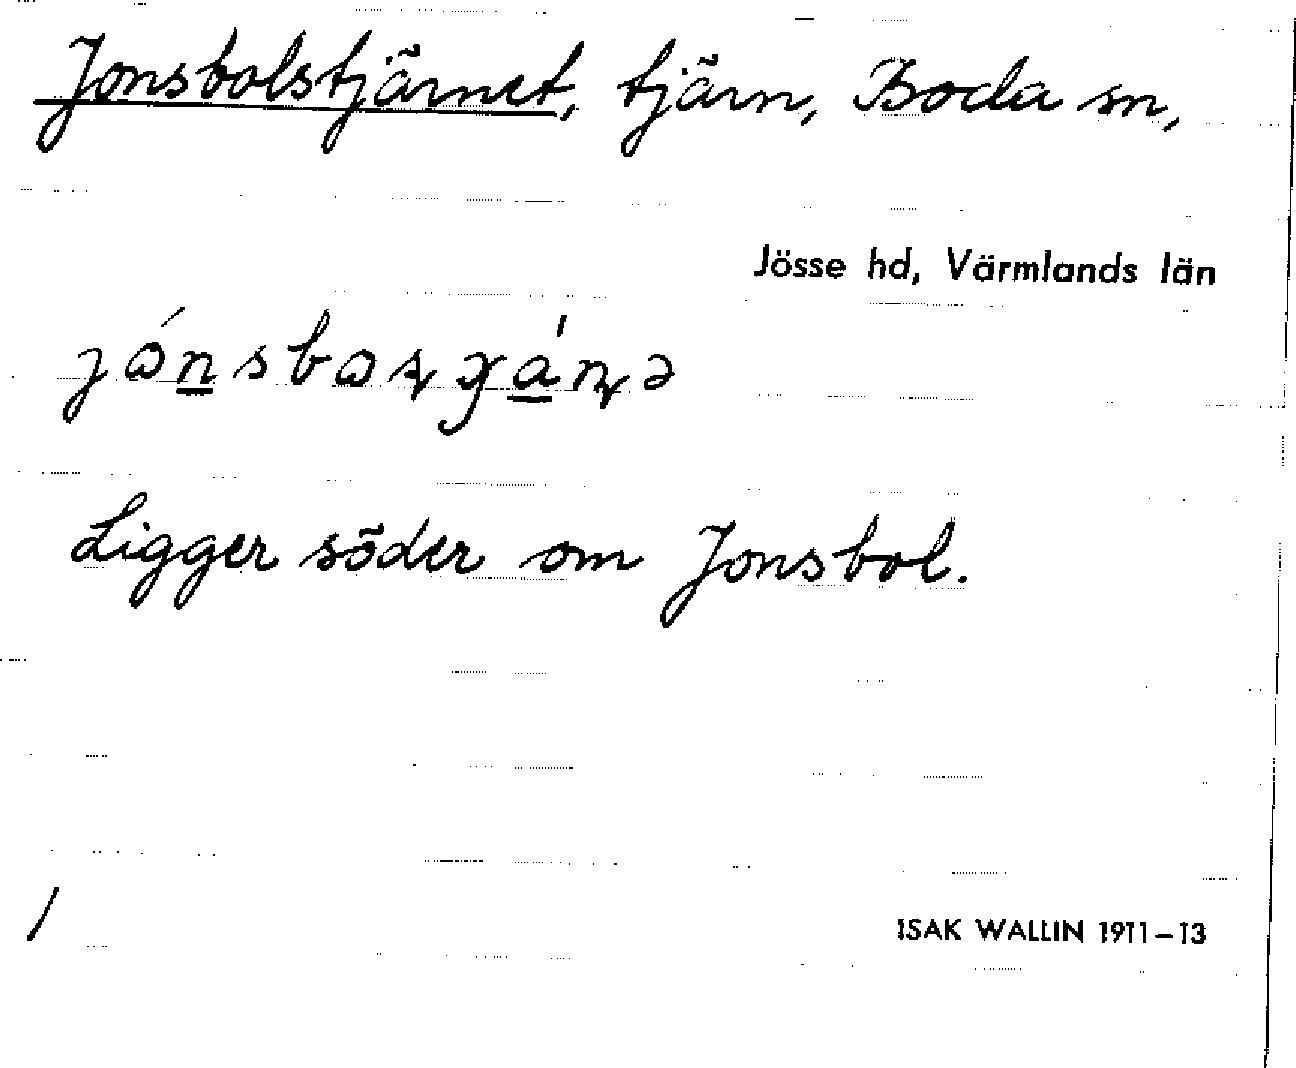 Jonsbolstjärnet, tjärn, Boda sn,
Jösse hd, Värmlands län
Ligger söder om Jonsbol.
/
ISAK WALLIN 1911–13